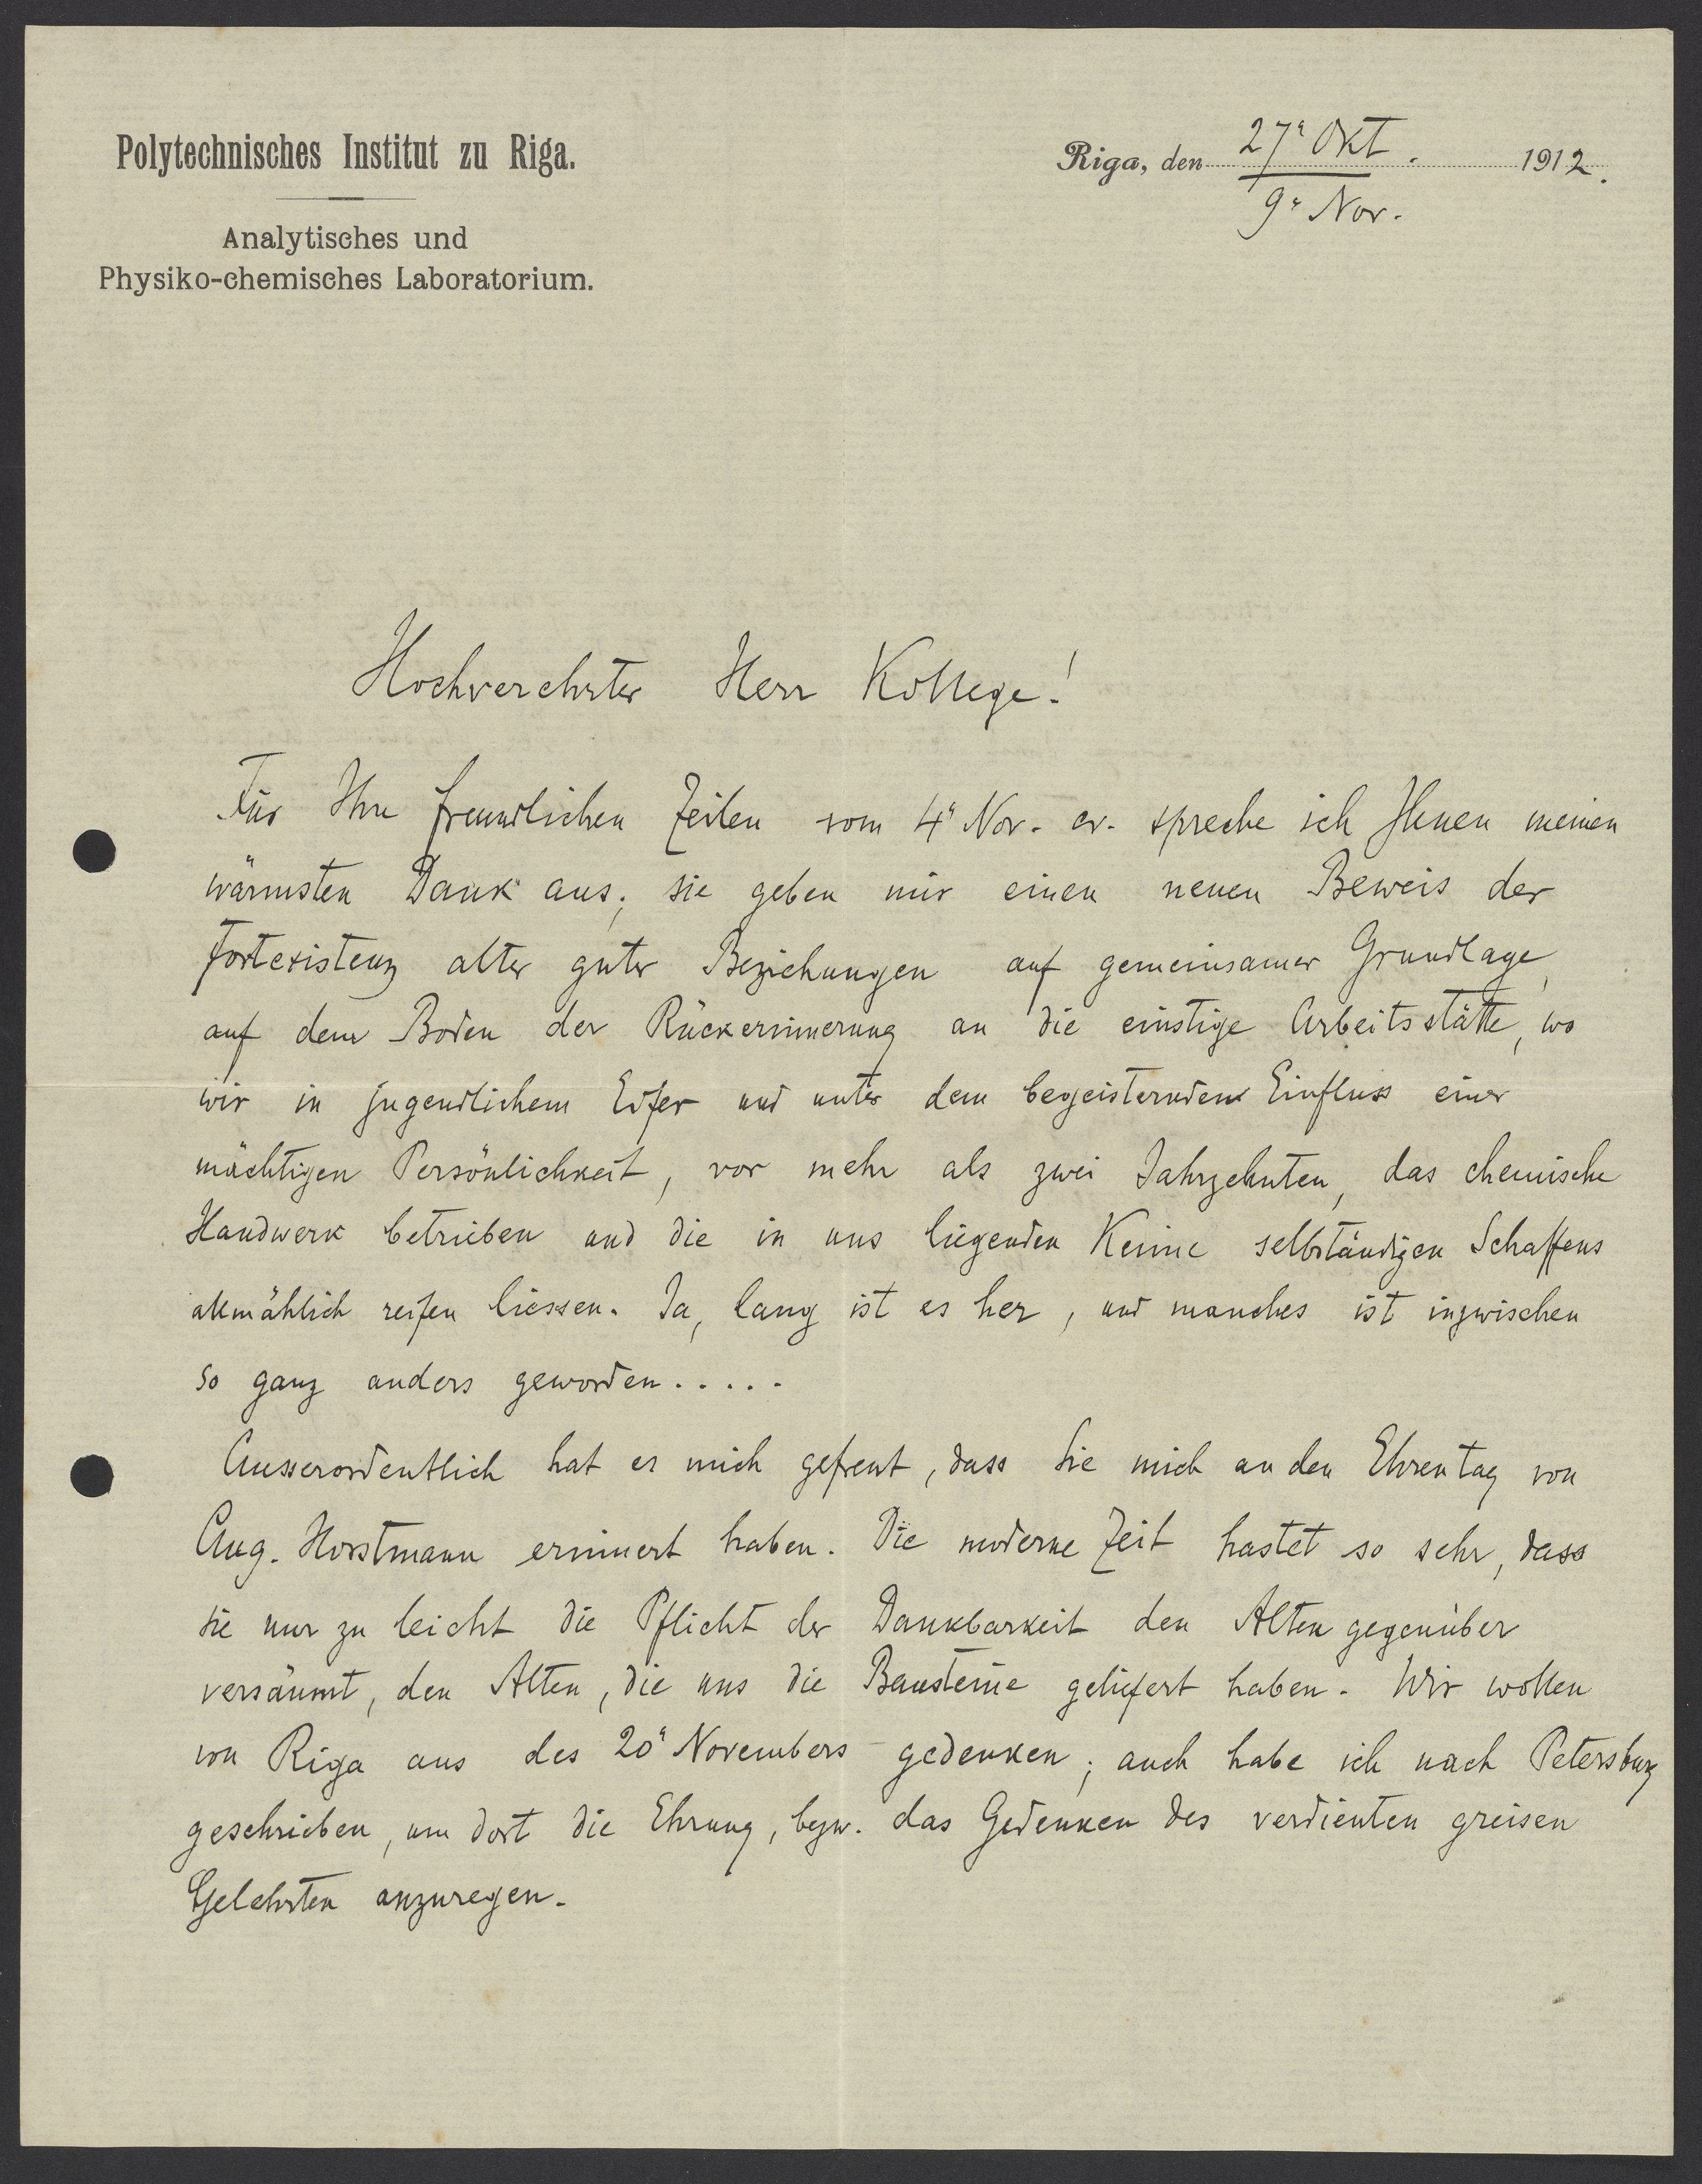 Polytechnisches Institut zu Riga.
Analytisches und
Physiko-chemisches Laboratorium.
Riga, den 27. Okt. 1912.
9. Nov.
Hochverehrter Herr Kollege!
Für Ihre freundlichen Zeilen vom 4. Nov. cr. spreche ich Ihnen meinen
wärmsten Dank aus; sie geben mir einen neuen Beweis der
Fortexistenz alter guter Beziehungen auf gemeinsamer Grundlage,
auf dem Boden der Rückerinnerung an die einstige Arbeitsstätte, wo
wir in jugendlichem Eifer und unter dem begeisternden Einfluss einer
mächtigen Persönlichkeit, vor mehr als zwei Jahrzehnten, das chemische
Handwerk betrieben und die in uns liegenden Keime selbständigen Schaffens
allmählich reifen liessen. Ja, lang ist es her, und manches ist inzwischen
so ganz anders geworden.....
Ausserordentlich hat es mich gefreut, dass Sie mich an den Ehrentag von
Aug. Horstmann erinnert haben. Die moderne Zeit hastet so sehr, dass
sie nur zu leicht die Pflicht der Dankbarkeit den Alten gegenüber
versäumt, den Alten, die uns die Bausteine geliefert haben. Wir wollen
von Riga aus des 20. Novembers gedenken; auch habe ich nach Petersburg
geschrieben, um dort die Ehrung, bezw. das Gedenken des verdienten greisen
Gelehrten anzuregen.